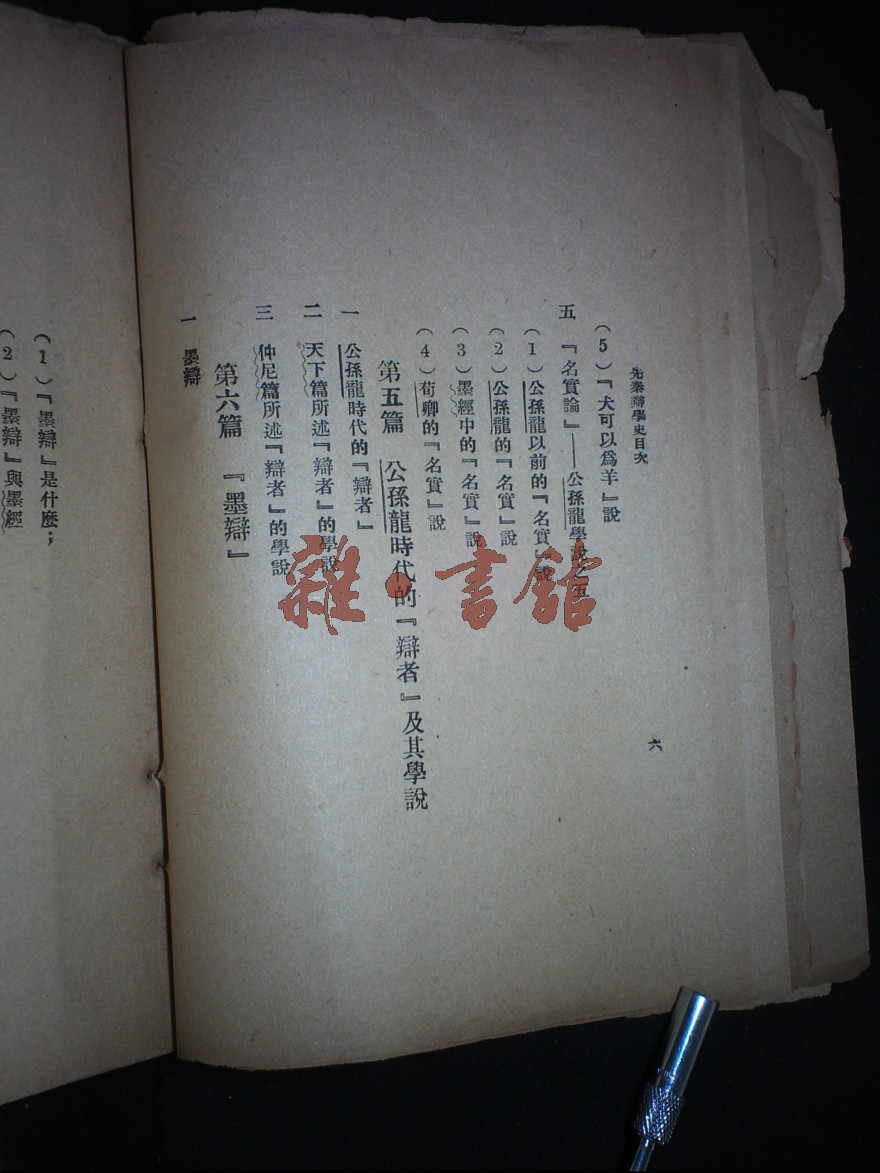 先秦辯學史目次
六
(5)『犬可以爲羊』說
五 『名實論』——公孫龍學說之五
(1)公孫龍以前的『名實』說
(2)公孫龍的『名實』說
(3)墨經中的『名實』說
(4)荀卿的『名實』說
第五篇 公孫龍時代的『辯者』及其學說
一 公孫龍時代的『辯者』
二 天下篇所述『辯者』的學說
三 仲尼篇所述『辯者』的學說
第六篇 『墨辯』
一 墨辯
(1)『墨辯』是什麼；
(2)『墨辯』與墨經
雜·書館